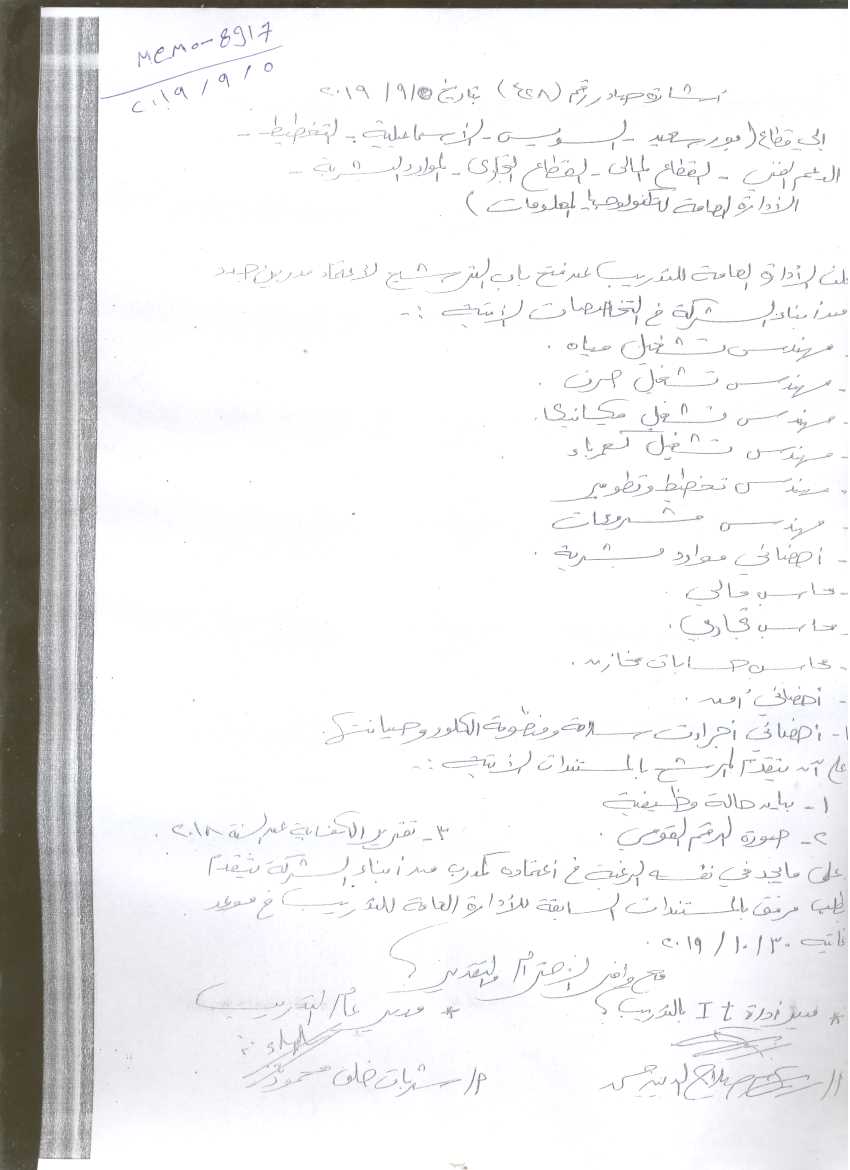 memo-8917
٢٠١٩/٩/٥
اشارة صادر رقم (٤٢٨) بتاريخ ٢٠١٩/٩/٥
الي قطاع (بورسعيد - السويس - الأسماعيلية - التخطيط -
الدعم الفني - القطاع المالى - القطاع التجارى - الموارد البشرية -
الأدارة العامة لتكنولوجيا المعلومات)
تعلن الأدارة العامة للتدريب عن فتح باب الترشيح لأعتماد مدربين جدد
من أبناء الشركة في التخصصات الأتية :-
- مهندس تشغيل مياه .
- مهندس تشغيل صرف .
- مهندس تشغيل ميكانيكا.
- مهندس تشغيل كهرباء
- مهندس تخطيط وتطوير
- مهندس مشروعات
- أخصائي موارد بشرية .
- محاسب مالي .
- محاسب تجاري .
- محاسب حسابات مخازن .
- أخصائي أمن .
- أخصائي أجراءات سلامة ومنظومة الكلور وصيانته.
على أن يتقدم المرشح بالمستندات الأتية :-
١- بيان حالة وظيفية
٢- صورة الرقم القومي . ٣- تقرير الكفاية عن السنة ٢٠١٨ .
على من يجد في نفسه الرغبة في أعتماده كمدرب من أبناء الشركة يتقدم
بطلب مرفق بالمستندات السابقة للأدارة العامة للتدريب في موعد
غايته ٢٠١٩/١٠/٣٠ .
مع وافر الأحترام والتقدير
* مدير أدارة It بالتدريب * مدير عام التدريب
أ/ صلاح الدين حسن م/ شربات خلف محمود